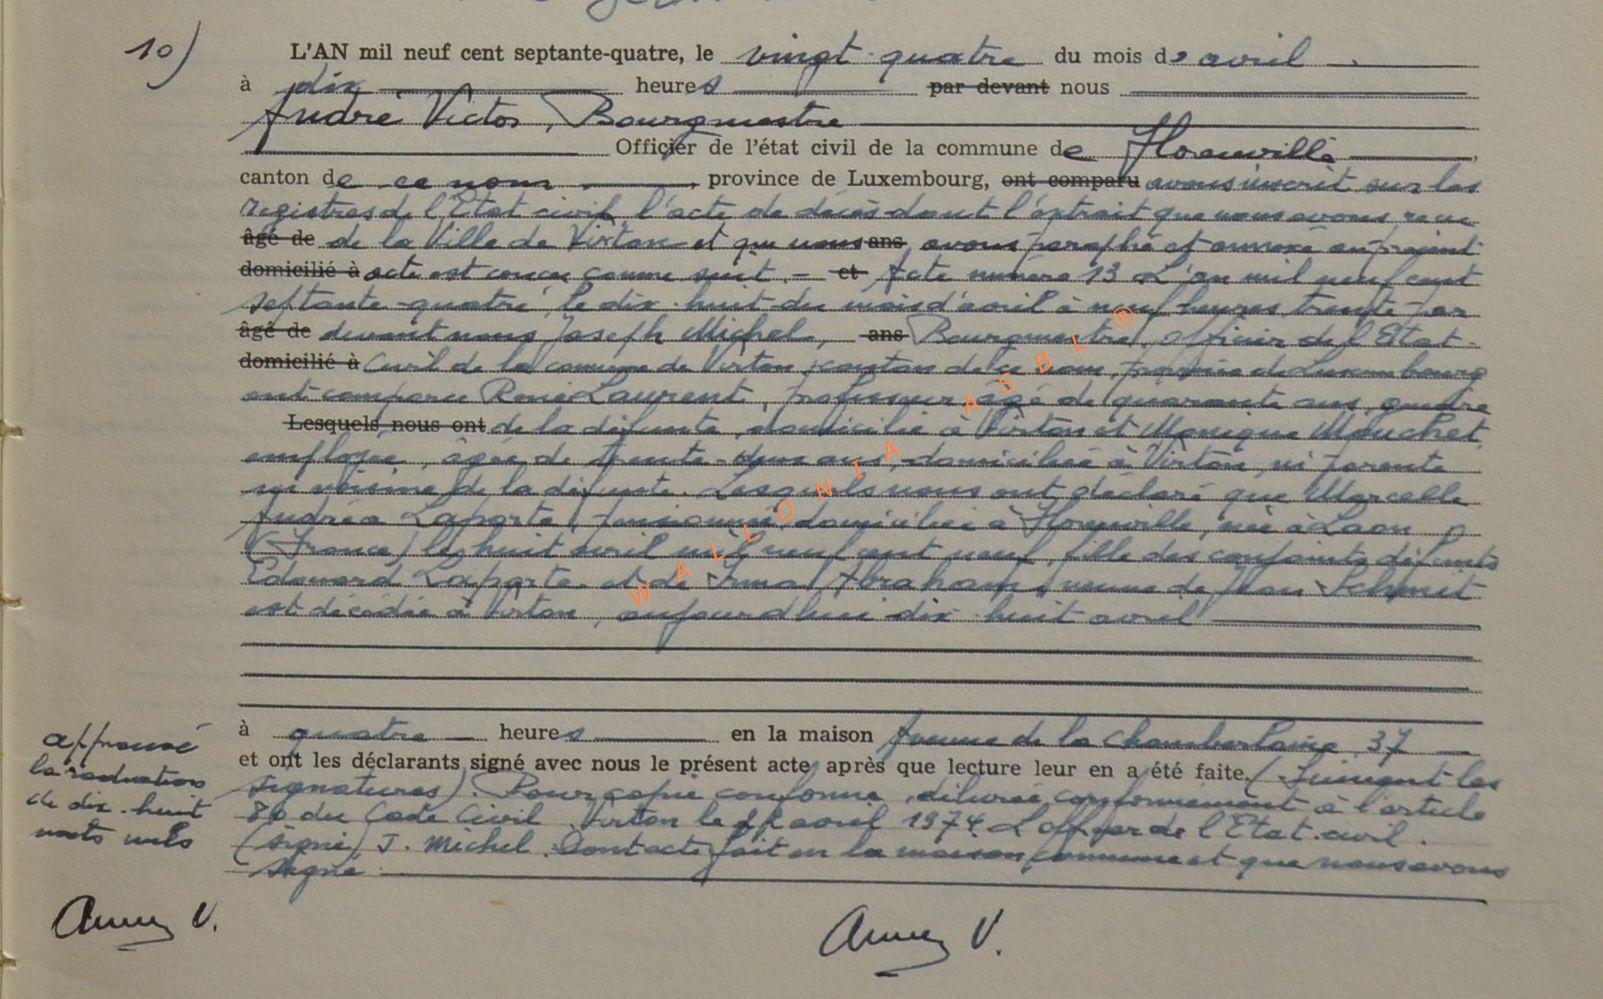 10)
L'AN mil neuf cent septante-quatre, le vingt quatre du mois de avril
à dix heures par devant nous
André Victor, Bourgmestre
Officier de l'état civil de la commune de Florenville,
canton de ce nom, province de Luxembourg, ont comparu avons inscrit sur les
registres de l'Etat civil, l'acte de décès dont l'extrait que nous avons reçu
âgé de de la Ville de Virton et que nous ans avons paraphé et annexé au présent
domicilié à acte est conçu comme suit. - et Acte numéro 13 L'an mil neuf cent
septante-quatre, le dix-huit du mois d'avril à neuf heures trente par
âgé de devant nous Joseph Michel, ans Bourgmestre, officier de l'Etat-
domicilié à Civil de la commune de Virton, canton de ce nom, province de Luxembourg
ont comparu René Laurent, professeur, âgé de quarante ans, gendre
Lesquels nous ont de la défunte, domicilié à Virton et Monique Mouchet,
employée, âgée de trente-deux ans, domiciliée à Virton, ni parente
ni voisine de la défunte. Lesquels nous ont déclaré que Marcelle
Andréa Laporte, pensionnée, domiciliée à Florenville, née à Laon
(France) le huit avril mil neuf cent neuf, fille des conjoints défunts
Edouard Laporte et de Irma Abraham, veuve de Jean Schmit
est décédée à Virton, aujourd'hui dix-huit avril
à quatre heures en la maison Avenue de la Chamberlaine 37
et ont les déclarants signé avec nous le présent acte après que lecture leur en a été faite. (Suivent les
signatures). Pour copie conforme, délivrée conformément à l'article
80 du Code Civil. Virton le avril 1974. L'officier de l'Etat-civil.
(signé) J. Michel. Dont acte fait en la maison communale et que nous avons
signé.
approuvé
la radiation
de dix-huit
mots nuls
V.
V.
WALLONIA ASBL ®